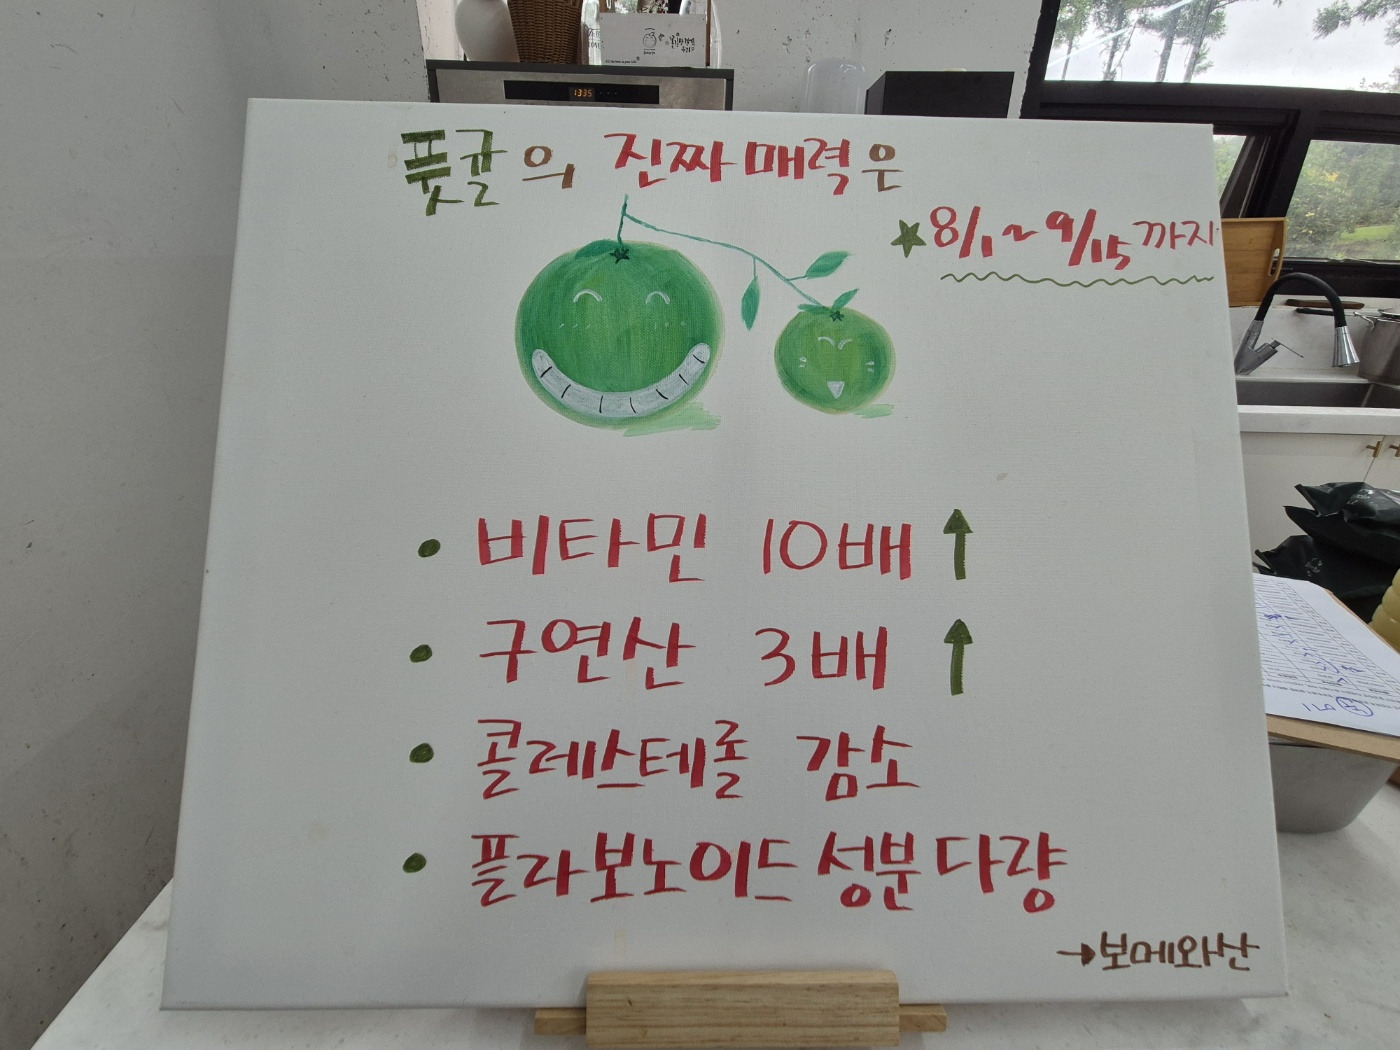 1335
풋귤의 진짜 매력은
★8/1~9/15까지
• 비타민 10배 ↑
• 구연산 3배 ↑
• 콜레스테롤 감소
• 플라보노이드 성분 다량
→보메와산